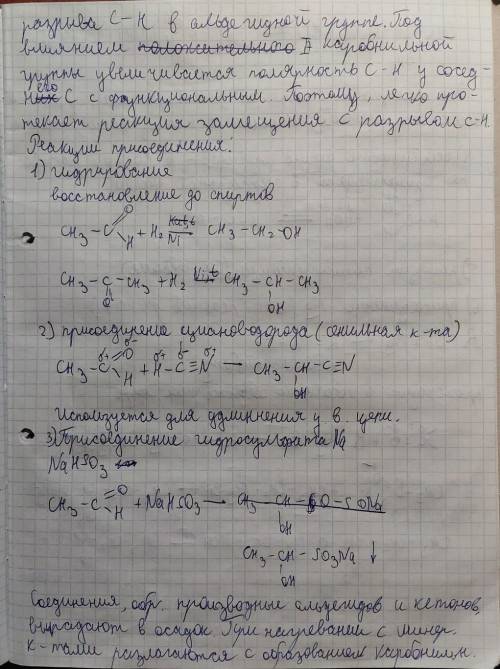 разрыва C–H в альдегидной группе. Под
влиянием положительного II карбонильной
группы увеличивается полярность C–H у сосед-
него C с функциональным. Поэтому, легко про-
текает реакция замещения с разрывом C–H.
Реакции присоединения.
1) гидрирование
восстановление до спиртов
CH3–C=O H + H2 → Ni CH3–CH2–OH
CH3–C–CH3 + H2 → Ni, t CH3–CH–CH3
O OH
2) присоединение циановодорода (синильная к-та)
CH3–C=O H + H–C≡N → CH3–CH–C≡N
OH
Используется для удлиннения у в. цепи.
3) Присоединение гидросульфата Na
NaHSO3
CH3–C=O H + NaHSO3 → CH3–CH–O–SONa
OH
CH3–CH–SO3Na ↓
OH
Соединения, обр. производные альдегидов и кетонов,
выпадают в осадок. При нагревании с минер.
к-тами разлагаются с образованием карбонильн.